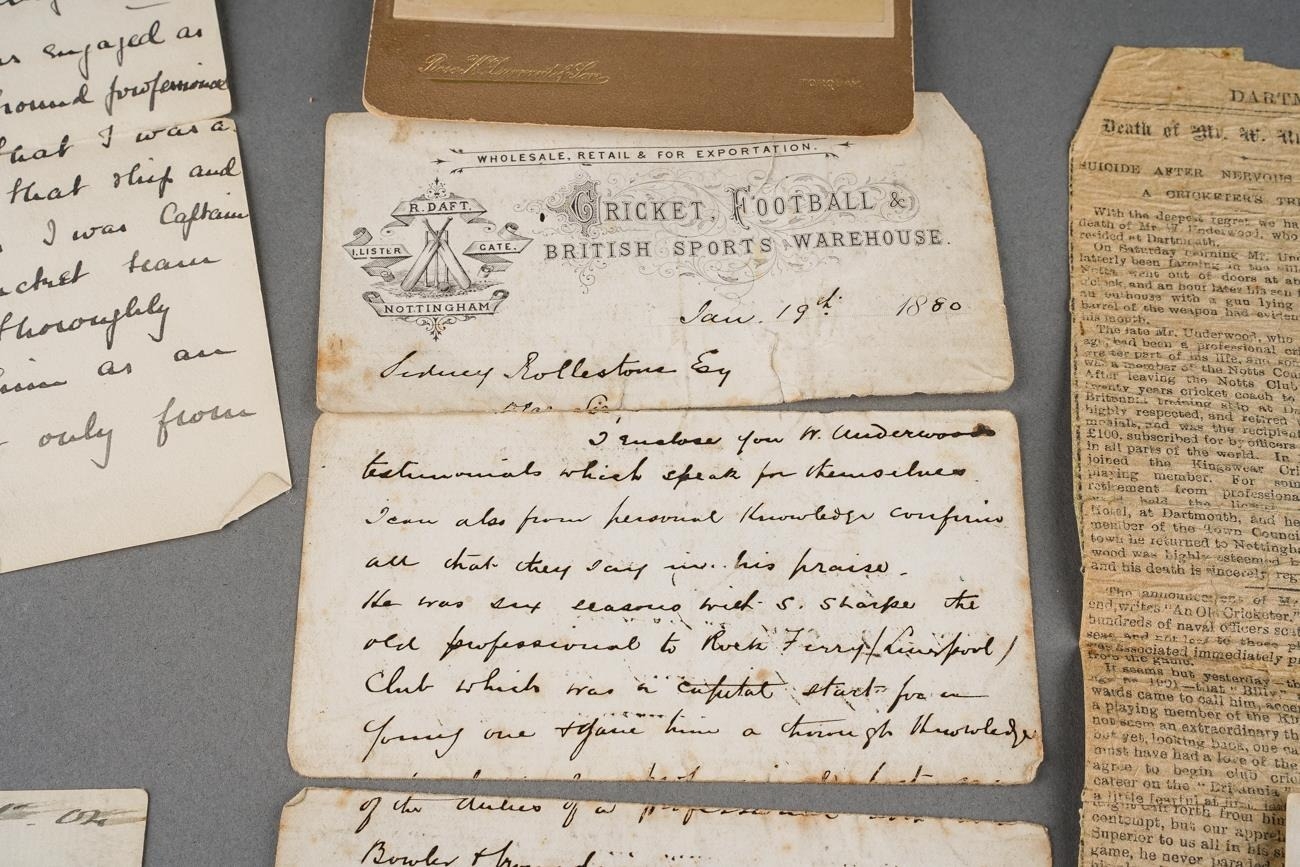 engaged as
round professional
that I was a
that ship and
I was Captain
cricket team
thoroughly
him as an
only from
& Son
TORQUAY
WHOLESALE, RETAIL & FOR EXPORTATION.
R. DAFT.
1. LISTER GATE.
NOTTINGHAM
CRICKET, FOOTBALL &
BRITISH SPORTS WAREHOUSE.
Jan. 19th 1880
Sidney Rollestone Esq
Dear Sir
I enclose you W. Underwoods
testimonials which speak for themselves.
I can also from personal knowledge confirm
all that they say in his praise.
He was six seasons with S. Sharpe the
old professional to Rock Ferry (Liverpool)
Club which was a capital start for a
young one & gave him a thorough knowledge
of the duties of a professional
Bowler &
DARTM
Death of Mr. W. Un
SUICIDE AFTER NERVOUS
A CRICKETER'S TR
With the deepest regret we ha
death of Mr. W. Underwood, who
resided at Dartmouth.
On Saturday morning Mr. Un
latterly been farming in the
Notts, went out of doors at
o'clock, and an hour later his son
an outhouse with a gun lying
barrel of the weapon had eviden
his mouth.
The late Mr. Underwood, who
age, had been a professional cri
greater part of his life, and
was a member of the Notts Cou
After leaving the Notts Club
twenty years cricket coach to
Britannia training ship at Da
highly respected, and retired
and was the recipient
£100, subscribed for by officers
in all parts of the world. In
joined the Kingswear Cri
playing member. For som
retirement from professiona
and held the
Hotel, at Dartmouth, and he
member of the Town Counci
town he returned to Nottingha
wood was highly esteemed
and his death is sincerely reg
The announcement of Mr.
end, writes "An Old Cricketer,"
hundreds of naval officers scat
seas and not less to those
was associated immediately
from the game.
It seems but yesterday
1901—that "Billy"
wards came to call him, accep
a playing member of the Ki
not seem an extraordinary th
but yet, looking back, one ca
must have had a love of the
agree to begin club cric
career on the "Britannia"
a little fearful at first,
might call forth from him
contempt, but our appre
Superior to us all in his s
game, he never parade